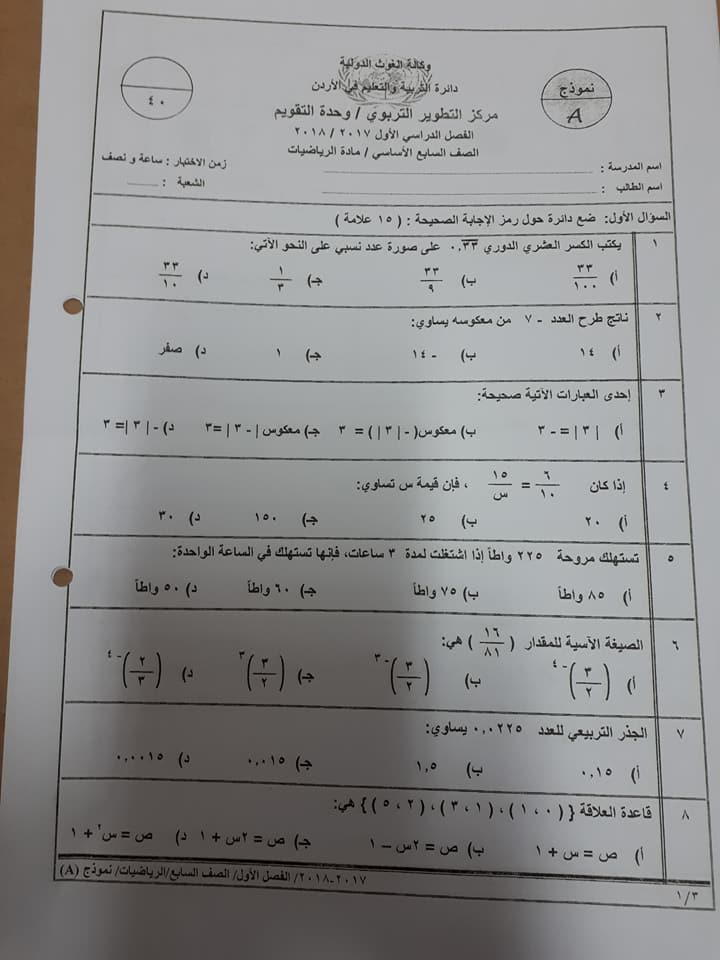 وكالة الغوث الدولية
دائرة التربية والتعليم في الأردن
مركز التطوير التربوي / وحدة التقويم
الفصل الدراسي الأول ٢٠١٧ / ٢٠١٨
الصف السابع الأساسي / مادة الرياضيات
نموذج
A
٤٠
زمن الاختبار : ساعة و نصف
الشعبة : ........
اسم المدرسة :
اسم الطالب :
السؤال الأول: ضع دائرة حول رمز الإجابة الصحيحة : ( ١٥ علامة )
١ يكتب الكسر العشري الدوري ٠,٣٣̅ على صورة عدد نسبي على النحو الآتي:
أ) ٣٣/١٠٠ ب) ٣٣/٩ جـ) ١/٣ د) ٣٣/١٠
٢ ناتج طرح العدد - ٧ من معكوسه يساوي:
أ) ١٤ ب) - ١٤ جـ) ١ د) صفر
٣ إحدى العبارات الآتية صحيحة:
أ) | ٣ | = - ٣ ب) معكوس( - | ٣ | ) = ٣ جـ) معكوس | - ٣ | =٣ د) - | ٣ |= ٣
٤ إذا كان ٦/١٠ = ١٥/س ، فإن قيمة س تساوي:
أ) ٢٠ ب) ٢٥ جـ) ١٥٠ د) ٣٠
٥ تستهلك مروحة ٢٢٥ واطاً إذا اشتغلت لمدة ٣ ساعات، فإنها تستهلك في الساعة الواحدة:
أ) ٨٥ واطاً ب) ٧٥ واطاً جـ) ٦٠ واطاً د) ٥٠ واطاً
٦ الصيغة الآسية للمقدار ( ١٦/٨١ ) هي:
أ) (٣/٢)^-٤ ب) (٣/٢)^-٣ جـ) (٣/٢)^٣ د) (٢/٣)^-٤
٧ الجذر التربيعي للعدد ٠,٠٢٢٥ يساوي:
أ) ٠,١٥ ب) ١,٥ جـ) ٠,٠١٥ د) ٠,٠٠١٥
٨ قاعدة العلاقة { ( ٠ ، ١ ) ، ( ١ ، ٣ ) ، ( ٢ ، ٥ ) } هي:
أ) ص = س + ١ ب) ص = ٢س – ١ جـ) ص = ٢س + ١ د) ص = س٢ + ١
٢٠١٧-٢٠١٨/ الفصل الأول/ الصف السابع/الرياضيات/ نموذج (A)
١/٣